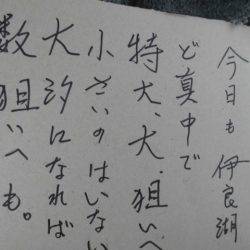 今日も伊良湖
ど真中で
特大、大、狙いへ
小さいのはいない
大汐になれば
数狙いへも。